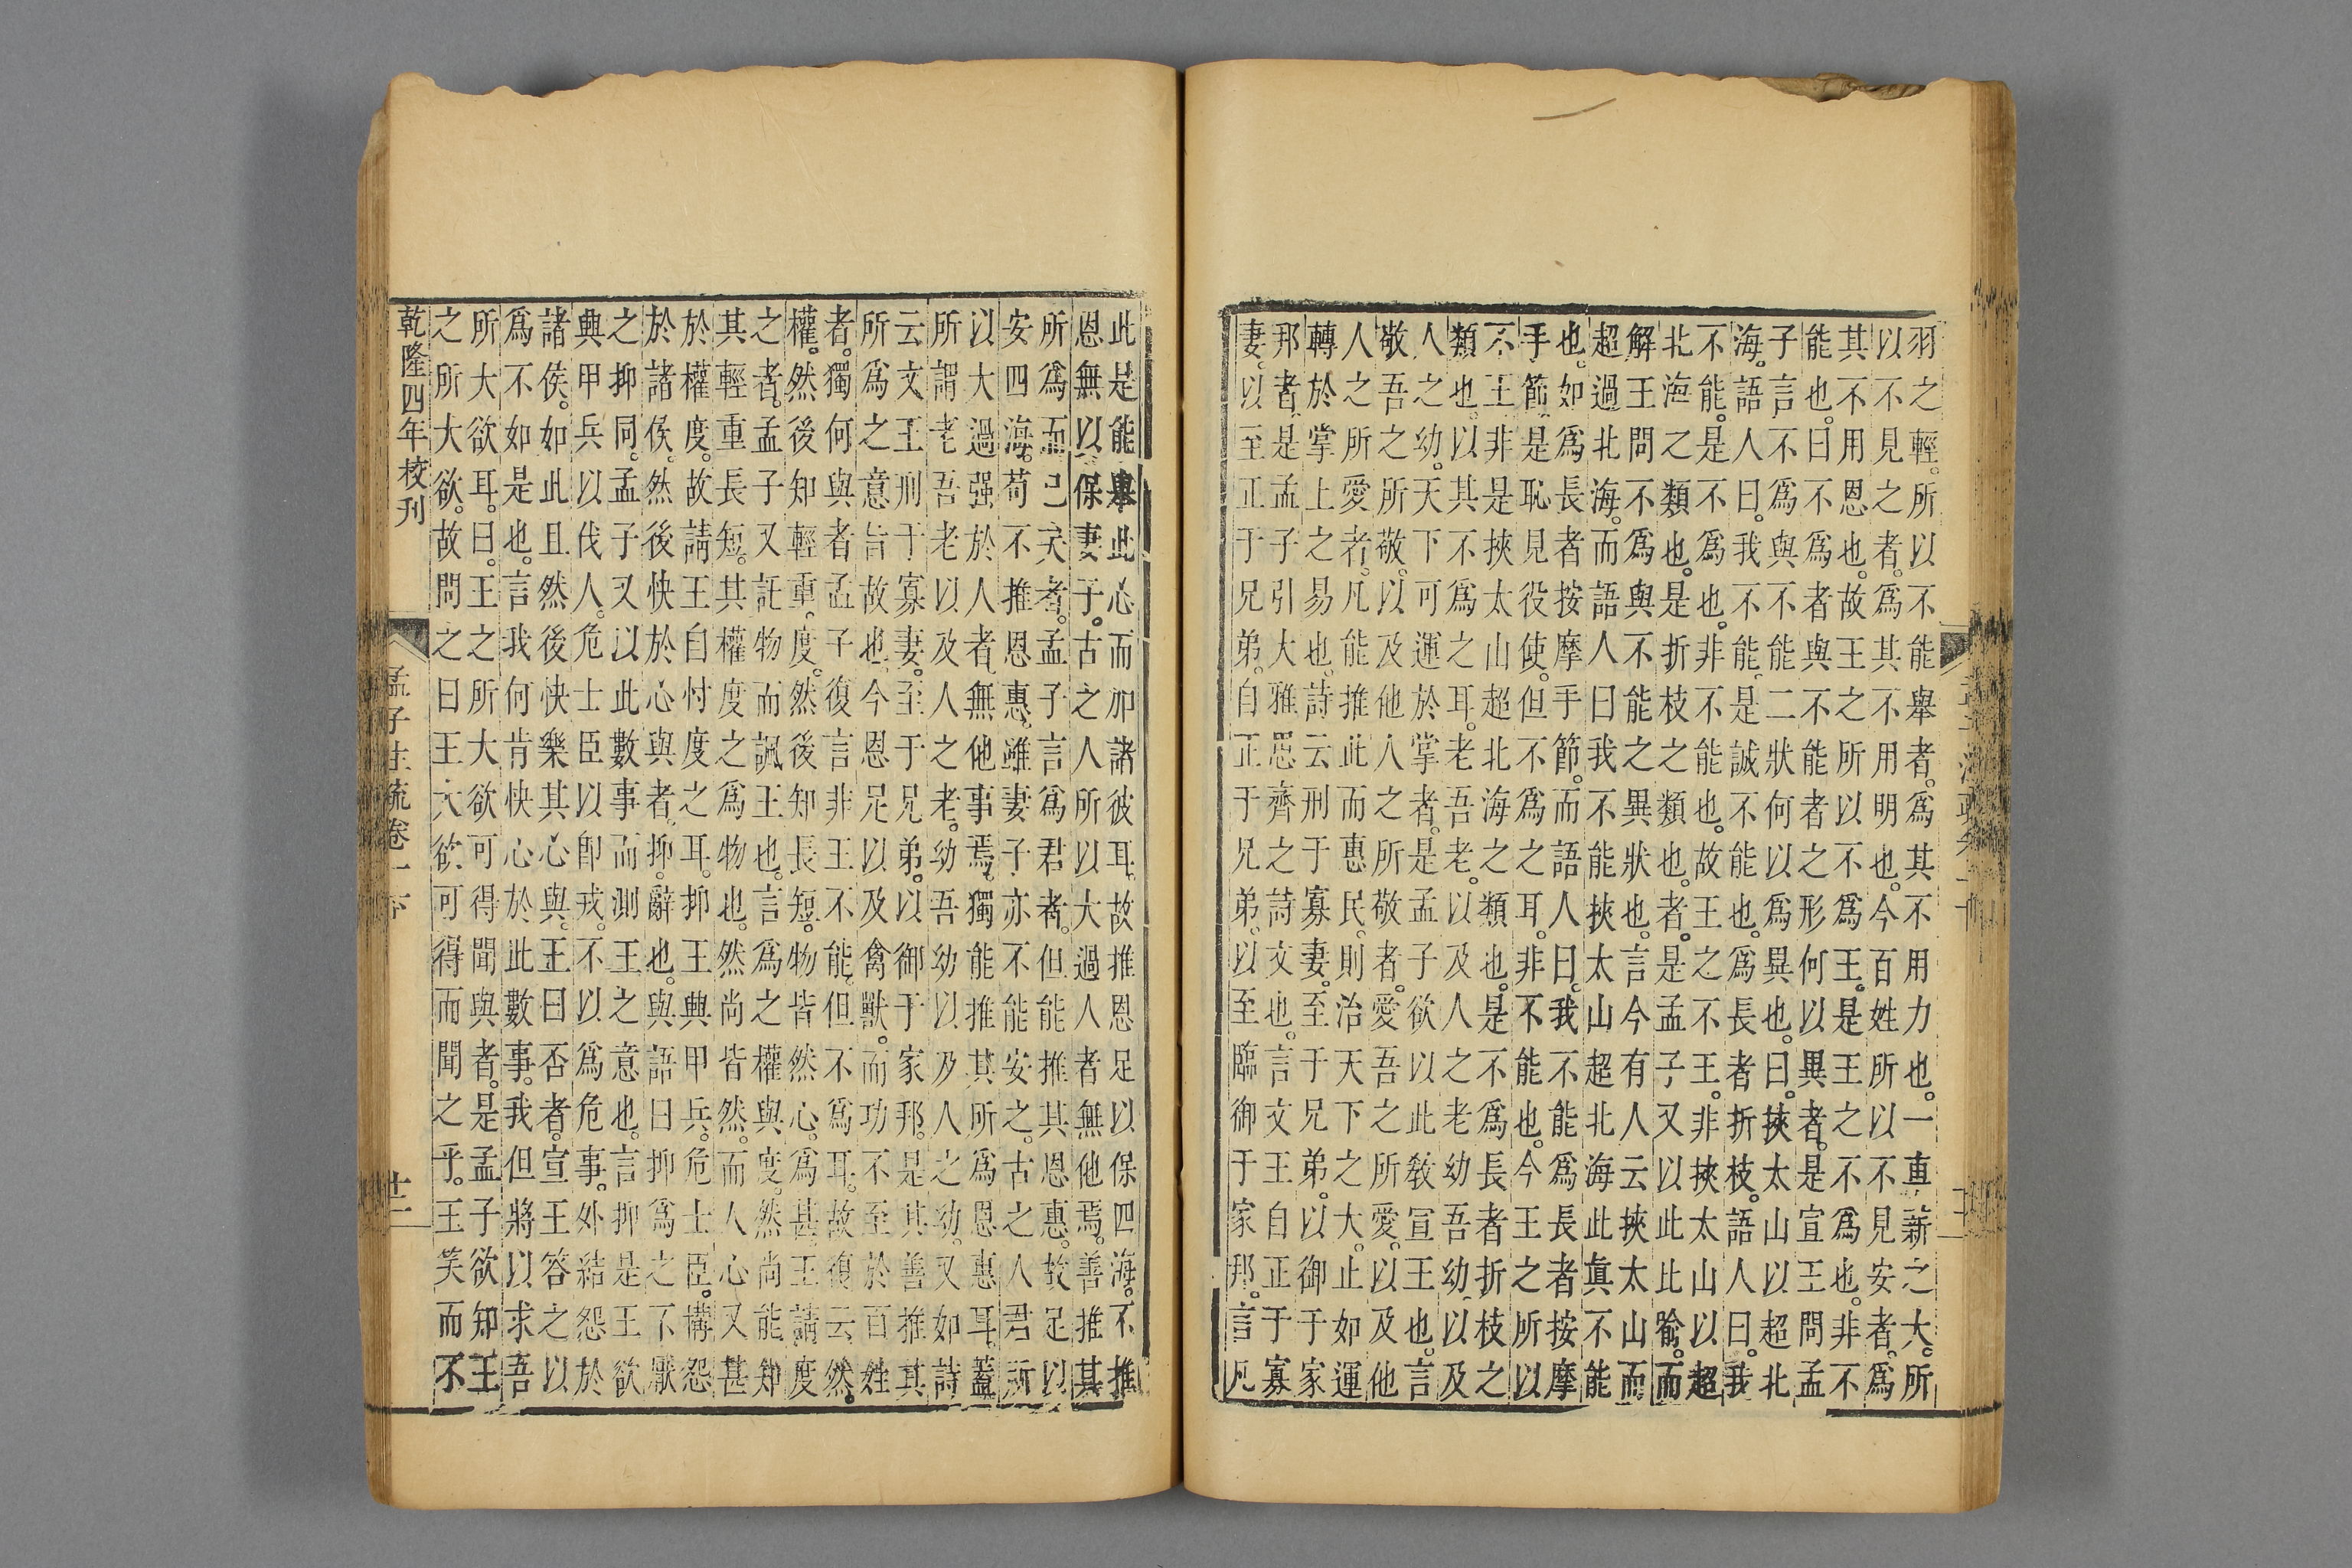 羽之輕。所以不能舉者。爲其不用力也。一車薪之大。所
以不見之者。爲其不用明也。今百姓所以不見安者。爲
其不用恩也。故王之所以不爲王。是王之不爲也。非不
能也。曰不爲者與不能者之形何以異者。是宣王問孟
子言不爲與不能二狀何以爲異也。曰。挾太山以超北
海。語人曰。我不能。是誠不能也。爲長者折枝。語人曰。我
不能。是不爲也。非不能也。故王之不王。非挾太山以超
北海之類也。是折枝之類也。者。是孟子又以此此喻。而
解王問不爲與不能之異狀也。言今有人云挾太山而
超過北海。而語人曰我不能挾太山超北海此眞不能
也。如爲長者按摩手節。而語人曰。我不能爲長者按摩
手節。是恥見役使但不爲之耳。非不能也。今王之所以
不王非是挾太山超北海之類也。是不爲長者折枝之
類也。以其不爲之耳。老吾老。以及人之老幼吾幼以及
人之幼。天下可運於掌者。是孟子欲以此教宣王也。言
敬吾之所敬。以及他人之所敬者。愛吾之所愛。以及他
人之所愛者。凡能推此而惠民。則治天下之大。止如運
轉於掌上之易也。詩云刑于寡妻。至于兄弟。以御于家
邦者。是孟子引大雅思齊之詩文也。言文王自正于寡
妻。以至正于兄弟。自正于兄弟。以至臨御于家邦。言凡
此是能舉此心而加諸彼耳。故推恩足以保四海。不推
恩無以保妻子。古之人所以大過人者無他焉。善推其
所爲而已矣者。孟子言爲君者。但能推其恩惠。故足以
安四海。苟不推恩惠。雖妻子亦不能安之。古之人君所
以大過强於人者。無他事焉。獨能推其所爲恩惠耳。蓋
所謂老吾老以及人之老。幼吾幼以及人之幼。又如詩
云文王刑于寡妻。至于兄弟。以御于家邦。是其善推其
所爲之意旨故也。今恩足以及禽獸。而功不至於百姓
者。獨何與者孟子復言非王不能。但不爲耳。故復云然。
權。然後知輕重。度。然後知長短。物皆然心。爲甚。王請度
之者。孟子又託物而諷王也。言爲之權與度。然尚能知
其輕重長短。其權度之爲物也。然尚皆然。而人心又甚
於權度。故請王自忖度之耳。抑王興甲兵。危士臣。構怨
於諸侯。然後快於心與者。抑。辭也。與語曰抑爲之不厭
之抑同。孟子又以此數事而測王之意也。言抑是王欲
興甲兵以伐人。危士臣以卽戎。不以爲危事。外結怨於
諸侯。如此且然後快樂其心與。王曰否者。宣王答之以
爲不如是也。言我何肯快心於此數事。我但將以求吾
所大欲耳。曰。王之所大欲可得聞與者。是孟子欲知王
之所大欲。故問之曰王大欲可得而聞之乎。王笑而不
乾隆四年校刊
孟子注疏卷一下